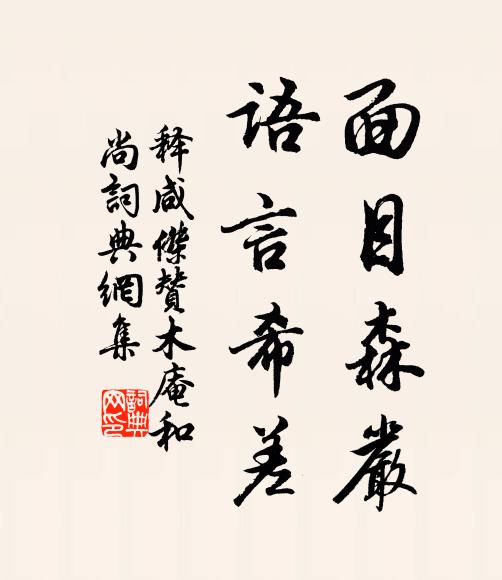 面目森嚴
语言希差
释咸傑贊木庵和
尚詞典網集
詞典
网印